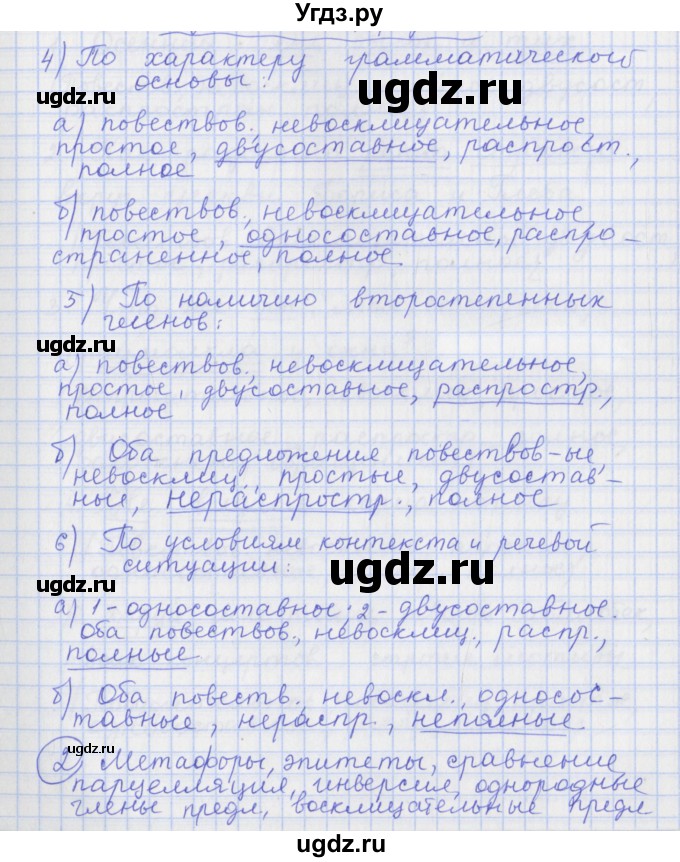 Угдз.ру
4) По характеру грамматической
основы:
ugdz.ru ugdz.ru
а) повествов., невосклицательное,
простое, двусоставное, распрост.,
полное
ugdz.ru
б) повествов., невосклицательное,
простое, односоставное, распро-
страненное, полное.
5) По наличию второстепенных
членов:
ugdz.ru ugdz.ru
а) повествов., невосклицательное,
простое, двусоставное, распростр.,
полное
б) Оба предложения повествов-ые
невосклиц., простые, двусостав-
ные, нераспростр., полное
6) По условиям контекста и речевой
ситуации:
ugdz.ru ugdz.ru
а) 1-односоставное; 2-двусоставное.
Оба повествов., невосклиц., распр.,
полные
ugdz.ru
б) Оба повеств., невоскл., односос-
тавные, нераспр., неполные.
2. Метафоры, эпитеты, сравнение
парцелляция, инверсия, однородные
члены предл., восклицательные предл
ugdz.ru